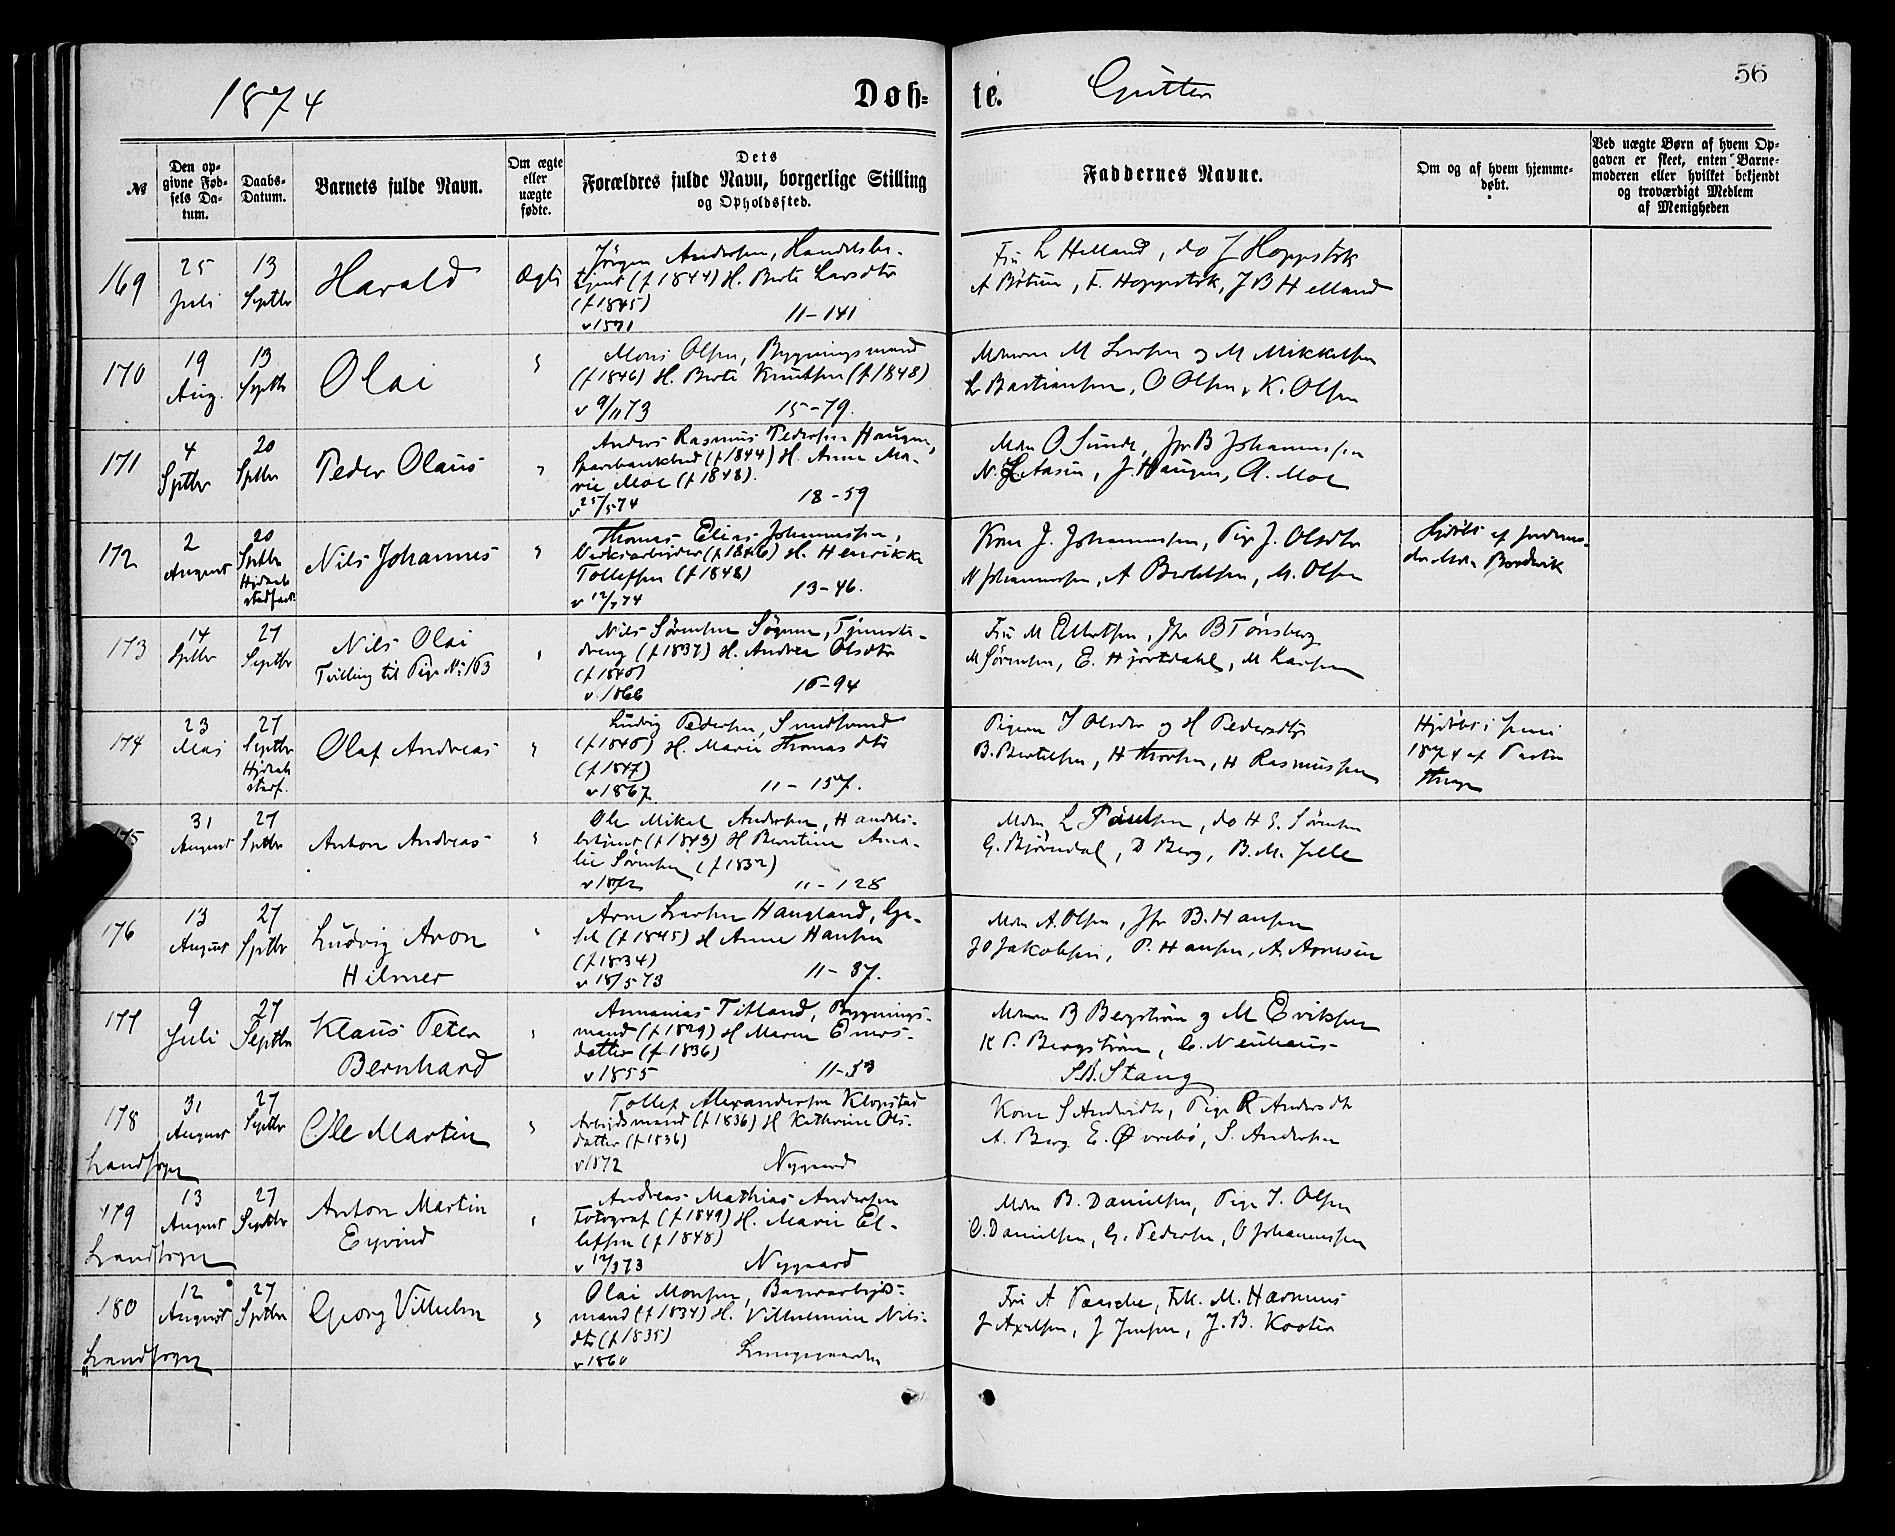 1874
Døb=
te.
Gutter
56
№
Den op-
givne Fød-
sels Da-
tum.
Daabs-
Datum.
Barnets fulde Navn.
Om ægte
eller
uægte
fødte.
Dets
Forældres fulde Navn, borgerlige Stilling
og Opholdssted.
Faddernes Navne.
Om og af hvem hjemme-
døbt.
Ved uægte Børn af hvem Op-
gaven er skeet, enten Barne-
moderen eller hvilket bekjendt
og troværdigt Medlem
af Menigheden
169
25
Juli
13
Septbr
Harald
Ægte
Jörgen Andersen, Handelsbe-
tjent (f 1844) H. Berte Larsdtr
(f 1845)
11-141
Fru L Helland, do J Hoppstok
A Bötun, F. Hoppstok, J B Helland
170
19
Aug.
13
Septbr
Olai
Mons Olsen, Bygningsmand
(f 1846) H. Berte Knutsen (f 1848)
v 9/11 73 15-79.
M Mikkelsen
L Bastiansen, O Olsen, K. Olsen
171
4
Sptbr
20
Sptbr
Peder Olaus
Anders Rasmus Pedersen Haugen,
Sparbankbud (f 1844) H. Anne Ma-
rie Moe (f 1848).
v 25/5 74 18-59
Mdm O Sunde, Jfr B Johannesen
J. Haugen, A. Moe
172
2
August
20
Septbr
Nils Johannes
Thomas Elias Johannessen,
(f 1846) H. Henrikke
Tollefsen (f 1848)
v 12/7 74 13-46.
Kone J. Johannesen, Pige J. Olsdtr
N Johannessen, A Bertelsen, M. Olsen
Hjdöbt af Jordemo-
der Mdm
173
14
Sptbr
27
Septbr
Nils Olai
Tvilling til Pige No 163
Nils Sörensen Tjeneste-
dreng (f 1837) H. Andrea Olsdtr
v 1866 16-94
Fru M Ellertsen, Jfr B Tönsberg
M Sörensen, E. Hjortdahl, M Larsen
174
23
Mai
27
Septbr
Olaf Andreas
Ludvig Pedersen,
H. Marie Thomasdtr
(f 1847)
v 1867 11-157.
Pigerne J Olsdtr og H Pedersdtr
B. Bertelsen, H Thorsen, H Rasmussen
Hjdöbt i Juni
1874 af Pastor
175
31
August
27
Sptbr
Anton Andreas
Ole Mikal Andersen, Handels-
betjent (f 1843) H Berntine Ama-
lie Sörensen (f 1832)
v 1872 11-128
Mdm L Paulsen, do H E. Sörensen
G. Björndal, D Berg, B. M. Jelle
176
13
August
27
Sptbr
Ludvig Aron
Hilmer
Arne Larsen Haugland, Ge-
sel (f 1845) H Anne Hansen
(f 1834)
v 18/5 73 11-37.
Mdm A. Olsen, Jfr B. Hansen
J O Jakobsen, P. Hansen, A. Arnesen
177
9
Juli
27
Septbr
Klaus Peter
Bernhard
Annanias Titland, Bygnings-
mand (f 1829) H Maren Eners-
datter (f 1836)
v 1855 11-53
B Bergström og M Eriksen
K P. Bergström, C. Neuhaus
S. B. Stang
178
Landsogn
31
August
27
Septbr
Ole Martin
Tollef Alexandersen Klopstad
Arbeidsmand (f 1836) H Kathrine Ols-
datter (f 1836)
v 1872 Nygaard
Kone S Andersdtr, Pige R Andersdtr
A. Berg E. Øvrebö, S. Andersen
179
Landsogn
13
August
27
Septbr
Anton Martin
Eyvind
Andreas Mathias Andersen
Fotograf (f 1849) H. Marie El-
lefsen (f 1848)
v 12/3 73 Nygaard
Mdm B. Danielsen, Pige J. Olsen
O. Danielsen, G. Pedersen, O Johannessen
180
Landsogn
12
August
27
Sptbr
Georg Vilhelm
Olai Monsen, Banearbeids-
mand (f 1834) H. Vilhelmine Nils-
dtr (f 1835)
v 1860 Lungegaarden
Fru A Paasche, Frk. M. Harmens
J Axelsen, J Jensen, J. B. Kooter